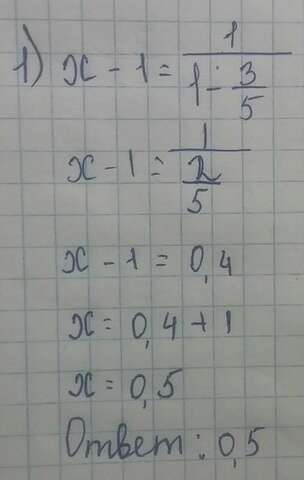 1) x - 1 = 1/(1 - 3/5)
x - 1 = 1/(2/5)
x - 1 = 0,4
x = 0,4 + 1
x = 0,5
Ответ: 0,5